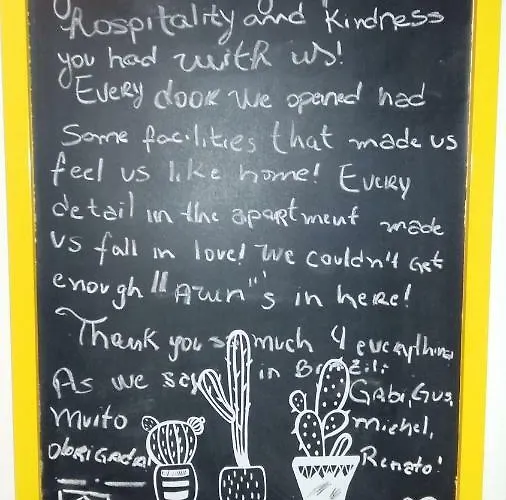 hospitality and kindness
you had with us!
Every door we opened had
some facilities that made us
feel us like home! Every
detail in the apartment made
us fall in love! We couldn't get
enough "Awn"s in here!
Thank you so much 4 everything
As we say in Brazil:
Muito
Obrigada!
Gabi, Gus,
Michel,
Renato!